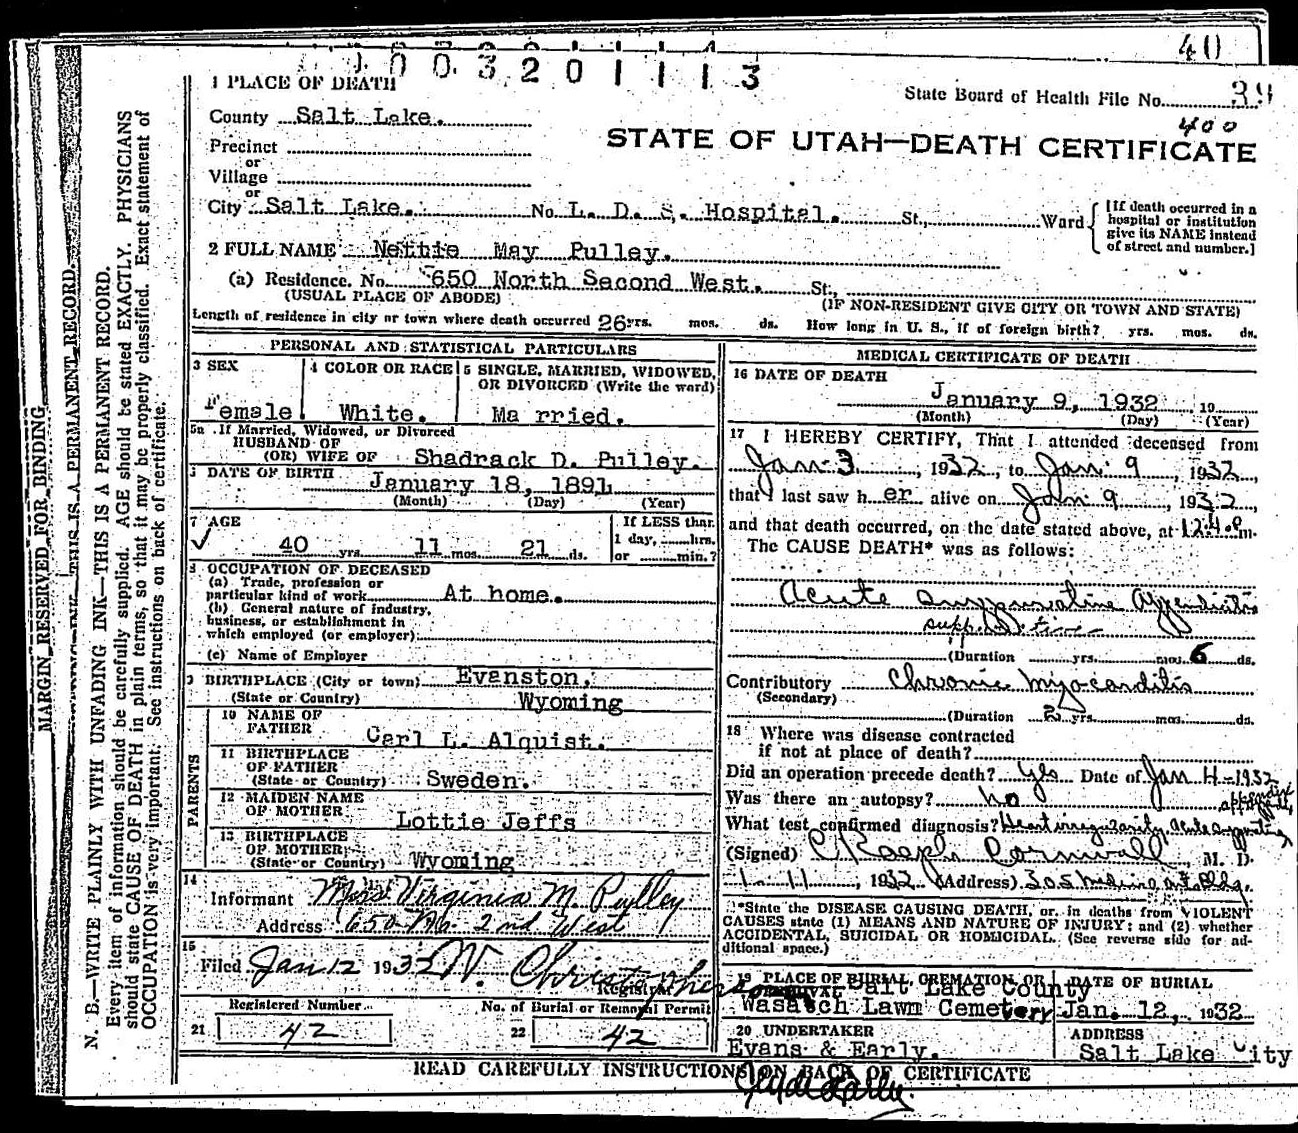 40
0 0 3 2 0 1 1 1 3
39
1 PLACE OF DEATH
State Board of Health File No.
400
County Salt Lake.
STATE OF UTAH—DEATH CERTIFICATE
Precinct
or
Village
or
City Salt Lake. No. L. D. S. Hospital. St., Ward
[If death occurred in a
hospital or institution
give its NAME instead
of street and number.]
2 FULL NAME Nettie May Pulley.
(a) Residence. No. 650 North Second West. St.,
(USUAL PLACE OF ABODE) (IF NON-RESIDENT GIVE CITY OR TOWN AND STATE)
Length of residence in city or town where death occurred 26 yrs. mos. ds. How long in U. S., if of foreign birth? yrs. mos. ds.
PERSONAL AND STATISTICAL PARTICULARS
3 SEX
Female.
4 COLOR OR RACE
White.
5 SINGLE, MARRIED, WIDOWED,
OR DIVORCED (Write the word)
Married.
5a If Married, Widowed, or Divorced
HUSBAND OF
(OR) WIFE OF Shadrack D. Pulley.
DATE OF BIRTH
January 18, 1891
(Month) (Day) (Year)
7 AGE
40 yrs. 11 mos. 21 ds.
If LESS than
1 day, hrs.
or min.?
8 OCCUPATION OF DECEASED
(a) Trade, profession or
particular kind of work At home.
(b) General nature of industry,
business, or establishment in
which employed (or employer)
(c) Name of Employer
9 BIRTHPLACE (City or town) Evanston,
(State or Country) Wyoming
PARENTS
10 NAME OF
FATHER Carl L. Alquist.
11 BIRTHPLACE
OF FATHER
(State or Country) Sweden.
12 MAIDEN NAME
OF MOTHER Lottie Jeffs
13 BIRTHPLACE
OF MOTHER
(State or Country) Wyoming
14
Informant Miss Virginia M. Pulley
Address 650 No. 2nd West
15
Filed Jan 12 1932 W. Christopherson
Registrar
Registered Number No. of Burial or Removal Permit
21 42 22 42
MEDICAL CERTIFICATE OF DEATH
16 DATE OF DEATH
January 9, 1932 19
(Month) (Day) (Year)
17 I HEREBY CERTIFY, That I attended deceased from
Jan 3, 1932, to Jan 9, 1932
that I last saw her alive on Jan 9, 1932,
and that death occurred, on the date stated above, at m.
The CAUSE DEATH* was as follows:
Acute suppurative Appendicitis
suppurative
(Duration yrs. mos. 6 ds.
Contributory Chronic myocarditis
(Secondary)
(Duration 2 yrs. mos. ds.
18 Where was disease contracted
if not at place of death?
Did an operation precede death? Yes Date of Jan 4-1932
Was there an autopsy? no
What test confirmed diagnosis? Heart irregularity, Acute suppurating
appendix
(Signed) Ralph Cornwall, M. D.
1-11, 1932 (Address) 305 Medical Art Bldg.
*State the DISEASE CAUSING DEATH, or in deaths from VIOLENT
CAUSES state (1) MEANS AND NATURE OF INJURY; and (2) whether
ACCIDENTAL, SUICIDAL OR HOMICIDAL. (See reverse side for ad-
ditional space.)
19 PLACE OF BURIAL CREMATION OR
REMOVAL Salt Lake County
Wasatch Lawn Cemetery
DATE OF BURIAL
Jan. 12, 1932
20 UNDERTAKER
Evans & Early.
ADDRESS
Salt Lake City
READ CAREFULLY INSTRUCTIONS ON BACK OF CERTIFICATE
MARGIN RESERVED FOR BINDING
THIS IS A PERMANENT RECORD.
N. B.—WRITE PLAINLY WITH UNFADING INK—THIS IS A PERMANENT RECORD.
Every item of information should be carefully supplied. AGE should be stated EXACTLY. PHYSICIANS
should state CAUSE OF DEATH in plain terms, so that it may be properly classified. Exact statement of
OCCUPATION is very important. See instructions on back of certificate.